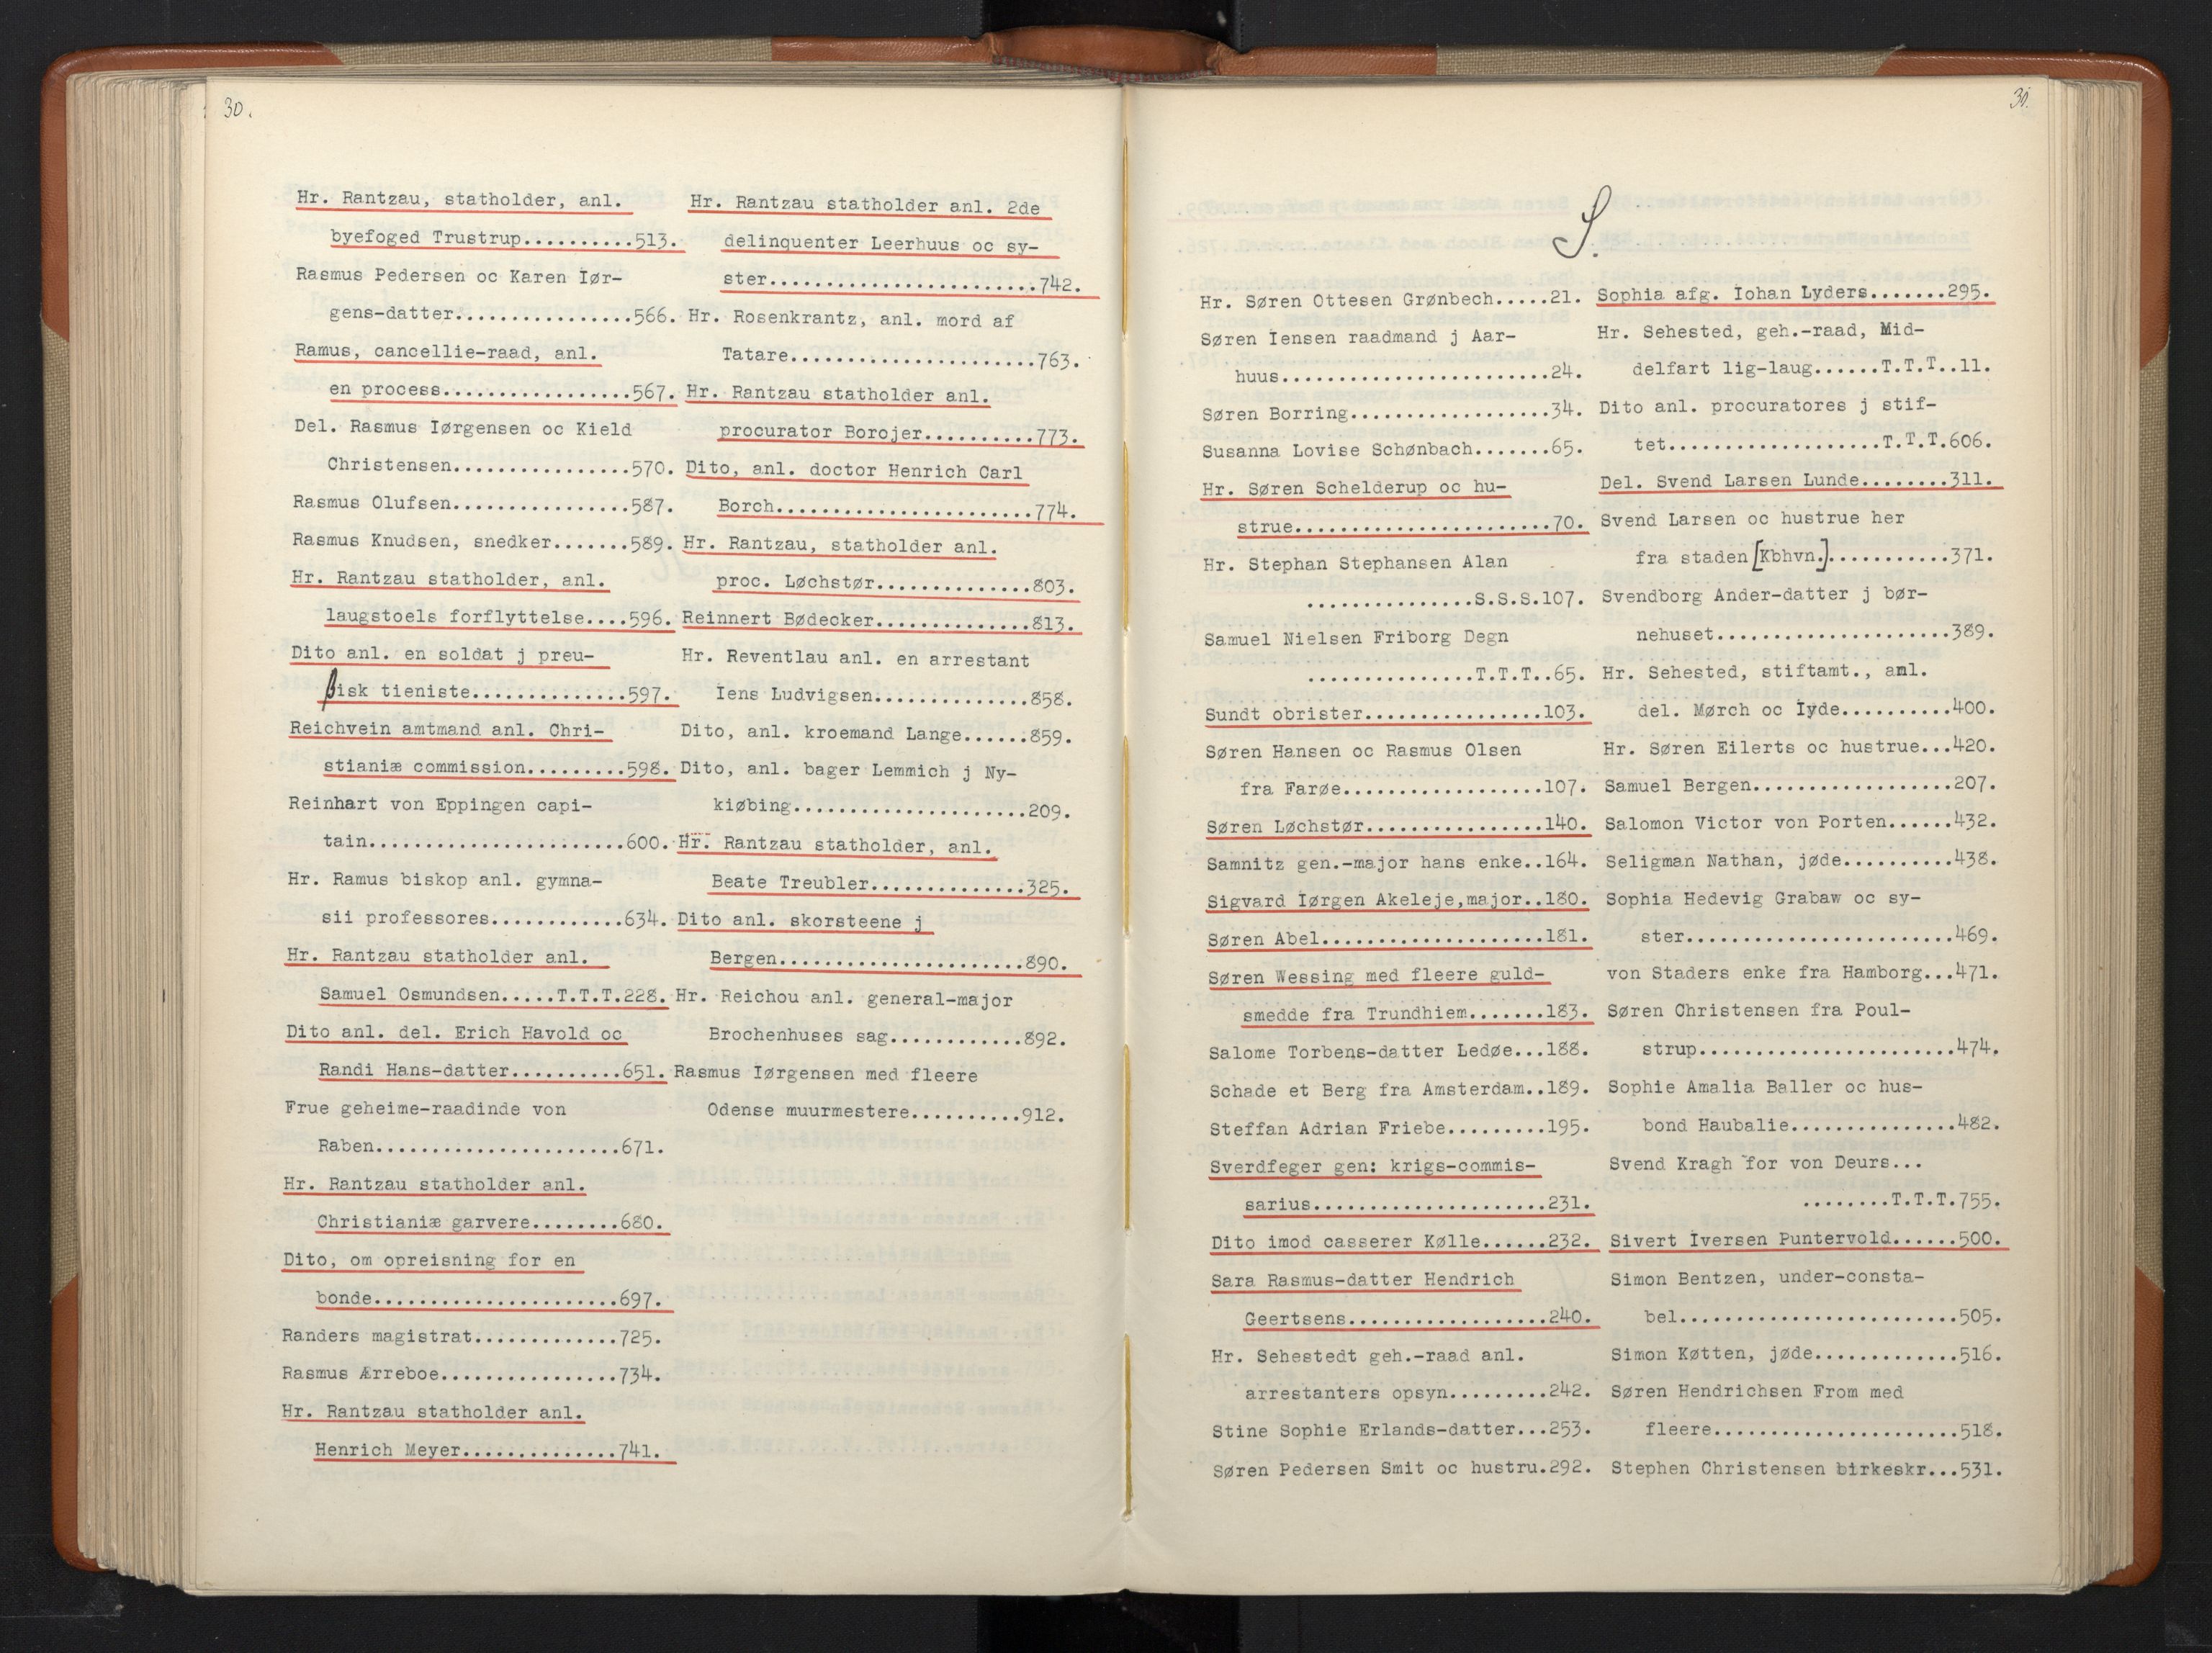 30.
Hr. Rantzau, statholder, anl.
byefoged Trustrup..........513.
Rasmus Pedersen oc Karen Iør-
gens-datter................566.
Ramus, cancellie-raad, anl.
en process.................567.
Del. Rasmus Iørgensen oc Kield
Christensen................570.
Rasmus Olufsen................587.
Rasmus Knudsen, snedker.......589.
Hr. Rantzau statholder, anl.
laugstoels forflyttelse....596.
Dito anl. en soldat j preu-
ßisk tieniste..............597.
Reichvein amtmand anl. Chri-
stianiæ commission.........598.
Reinhart von Eppingen capi-
tain.......................600.
Hr. Ramus biskop anl. gymna-
sii professores............634.
Hr. Rantzau statholder anl.
Samuel Osmundsen.....T.T.T.228.
Dito anl. del. Erich Havold oc
Randi Hans-datter..........651.
Frue geheime-raadinde von
Raben......................671.
Hr. Rantzau statholder anl.
Christianiæ garvere........680.
Dito, om opreisning for en
bonde......................697.
Randers magistrat.............725.
Rasmus Ærreboe................734.
Hr. Rantzau statholder anl.
Henrich Meyer..............741.
Hr. Rantzau statholder anl. 2de
delinquenter Leerhuus oc sy-
ster........................742.
Hr. Rosenkrantz, anl. mord af
Tatare......................763.
Hr. Rantzau statholder anl.
procurator Borojer..........773.
Dito, anl. doctor Henrich Carl
Borch.......................774.
Hr. Rantzau, statholder anl.
proc. Løchstør..............803.
Reinnert Bødecker..............813.
Hr. Reventlau anl. en arrestant
Iens Ludvigsen..............858.
Dito, anl. kroemand Lange......859.
Dito, anl. bager Lemmich j Ny-
kiøbing.....................209.
Hr. Rantzau statholder, anl.
Beate Treubler..............325.
Dito anl. skorsteene j
Bergen......................890.
Hr. Reichou anl. general-major
Brochenhuses sag............892.
Rasmus Iørgensen med fleere
Odense muurmestere..........912.
31.
S.
Hr. Søren Ottesen Grønbech.....21.
Søren Iensen raadmand j Aar-
huus........................24.
Søren Borring..................34.
Susanna Lovise Schønbach.......65.
Hr. Søren Schelderup oc hu-
strue.......................70.
Hr. Stephan Stephansen Alan
...............S.S.S.107.
Samuel Nielsen Friborg Degn
...............T.T.T..65.
Sundt obrister................103.
Søren Hansen oc Rasmus Olsen
fra Farøe..................107.
Søren Løchstør................140.
Samnitz gen.-major hans enke..164.
Sigvard Iørgen Akeleje,major..180.
Søren Abel....................181.
Søren Wessing med fleere guld-
smedde fra Trundhiem.......183.
Salome Torbens-datter Ledøe...188.
Schade et Berg fra Amsterdam..189.
Steffan Adrian Friebe.........195.
Sverdfeger gen: krigs-commis-
sarius.....................231.
Dito imod casserer Kølle......232.
Sara Rasmus-datter Hendrich
Geertsens..................240.
Hr. Sehestedt geh.-raad anl.
arrestanters opsyn.........242.
Stine Sophie Erlands-datter...253.
Søren Pedersen Smit oc hustru.292.
Sophia afg. Iohan Lyders.......295.
Hr. Sehested, geh.-raad, Mid-
delfart lig-laug......T.T.T..11.
Dito anl. procuratores j stif-
tet...................T.T.T.606.
Del. Svend Larsen Lunde........311.
Svend Larsen oc hustrue her
fra staden [Kbhvn.]...........371.
Svendborg Ander-datter j bør-
nehuset.....................389.
Hr. Sehested, stiftamt., anl.
del. Mørch oc Iyde..........400.
Hr. Søren Eilerts oc hustrue...420.
Samuel Bergen..................207.
Salomon Victor von Porten......432.
Seligman Nathan, jøde..........438.
Sophia Hedevig Grabaw oc sy-
ster........................469.
von Staders enke fra Hamborg...471.
Søren Christensen fra Poul-
strup.......................474.
Sophie Amalia Baller oc hus-
bond Haubalie...............482.
Svend Kragh for von Deurs...
........T.T.T.755.
Sivert Iversen Puntervold......500.
Simon Bentzen, under-consta-
bel.........................505.
Simon Køtten, jøde.............516.
Søren Hendrichsen From med
fleere......................518.
Stephen Christensen birkeskr...531.